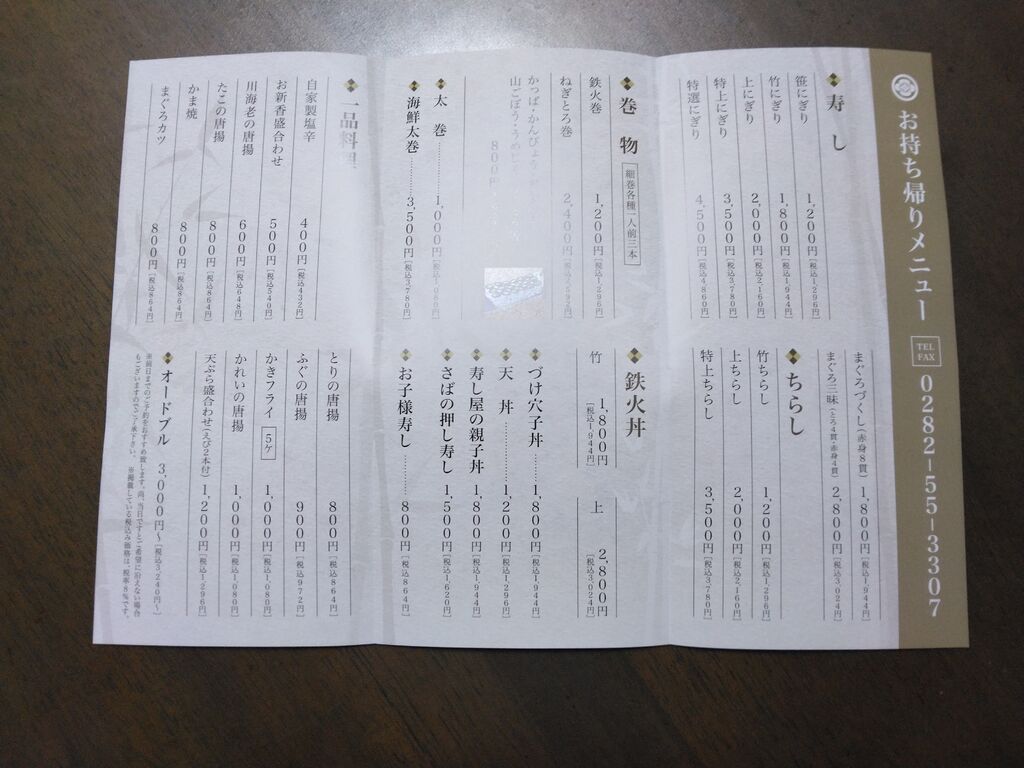 お持ち帰りメニュー TEL FAX 0282-55-3307
寿し
笹にぎり 1,200円［税込1,296円］
竹にぎり 1,800円［税込1,944円］
上にぎり 2,000円［税込2,160円］
特上にぎり 3,500円［税込3,780円］
特選にぎり 4,500円［税込4,860円］
まぐろづくし（赤身8貫） 1,800円［税込1,944円］
まぐろ三昧（とろ4貫・赤身4貫） 2,800円［税込3,024円］
ちらし
竹ちらし 1,200円［税込1,296円］
上ちらし 2,000円［税込2,160円］
特上ちらし 3,500円［税込3,780円］
巻物 細巻各種一人前三本
鉄火巻 1,200円［税込1,296円］
ねぎとろ巻 2,400円［税込2,592円］
かっぱ・かんぴょう
山ごぼう・うめしそ
800円
太巻 1,000円［税込1,080円］
海鮮太巻 3,500円［税込3,780円］
鉄火丼
竹 1,800円［税込1,944円］
上 2,800円［税込3,024円］
づけ穴子丼 1,800円［税込1,944円］
天丼 1,200円［税込1,296円］
寿し屋の親子丼 1,800円［税込1,944円］
さばの押し寿し 1,500円［税込1,620円］
お子様寿し 800円［税込864円］
一品料理
自家製塩辛 400円［税込432円］
お新香盛合わせ 500円［税込540円］
川海老の唐揚 600円［税込648円］
たこの唐揚 800円［税込864円］
かま焼 800円［税込864円］
まぐろカツ 800円［税込864円］
とりの唐揚 800円［税込864円］
ふぐの唐揚 900円［税込972円］
かきフライ 5ケ 1,000円［税込1,080円］
かれいの唐揚 1,000円［税込1,080円］
天ぷら盛合わせ（えび2本付） 1,200円［税込1,296円］
オードブル 3,000円〜［税込3,240円〜］
※前日までのご予約をおすすめ致します。尚、当日ですとご希望に沿えない場合
もございますのでご了承下さい。 ※掲載している税込み価格は、税率8％です。